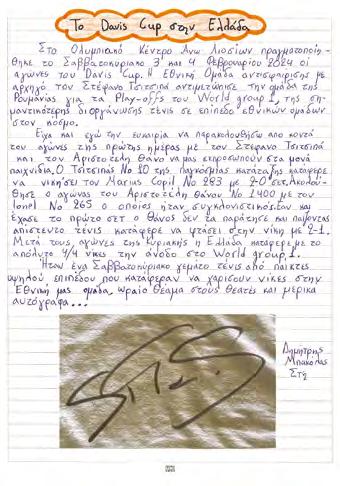 Το Davis Cup στην Ελλάδα
Στο Ολυμπιακό Κέντρο Άνω Λιοσίων πραγματοποιή-
θηκε το Σαββατοκύριακο 3 και 4 Φεβρουαρίου 2024 οι
αγώνες του Davis Cup. Η Εθνική Ομάδα αντισφαίρισης με
αρχηγό τον Στέφανο Τσιτσιπά αντιμετώπισε την ομάδα της
Ρουμανίας για τα Play-offs του World group 1, της ση-
μαντικότερης διοργάνωσης τένις σε επίπεδο εθνικών ομάδων
στον κόσμο.
Είχα και εγώ την ευκαιρία να παρακολουθήσω από κοντά
τους αγώνες της πρώτης ημέρας με τον Στέφανο Τσιτσιπά
και τον Αριστοτέλη Θάνο να μας εκπροσωπούν στα μονά
παιχνίδια. Ο Τσιτσιπάς Νο 10 της παγκόσμιας κατάταξης κατάφερε
να νικήσει τον Marius Copil Νο 283 με 2-0 σετ. Ακολού-
θησε ο αγώνας του Αριστοτέλη Θάνου Νο 1400 με τον
Ionel Νο 265 ο οποίος ήταν συγκλονιστικός αν και
έχασε το πρώτο σετ ο Θάνος δεν τα παράτησε και παίζοντας
απίστευτο τένις κατάφερε να φτάσει στην νίκη με 2-1.
Μετά τους αγώνες της Κυριακής η Ελλάδα κατάφερε με το
απόλυτο 4/4 νίκες την άνοδο στο World group 1.
Ήταν ένα Σαββατοκύριακο γεμάτο τένις από παίκτες
υψηλού επιπέδου που κατάφεραν να χαρίσουν νίκες στην
Εθνική μας ομάδα, ωραίο θέαμα στους θεατές και μερικά
αυτόγραφα...
Δημήτρης
Μπακόλας
Στ2